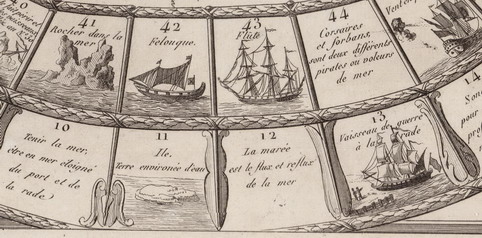 40
41
Rocher dans la
mer
42
Felouque.
43
Flute
44
Corsaires
et forbans,
sont deux différents
pirates ou voleurs
de mer
Vent
10
Tenir la mer,
être en mer éloigné
du port et de
la rade.
11
Ile,
terre environée d'eau
12
La marée
est le flux et reflux
de la mer
13
Vaisseau de guerre
à la rade
14
pour